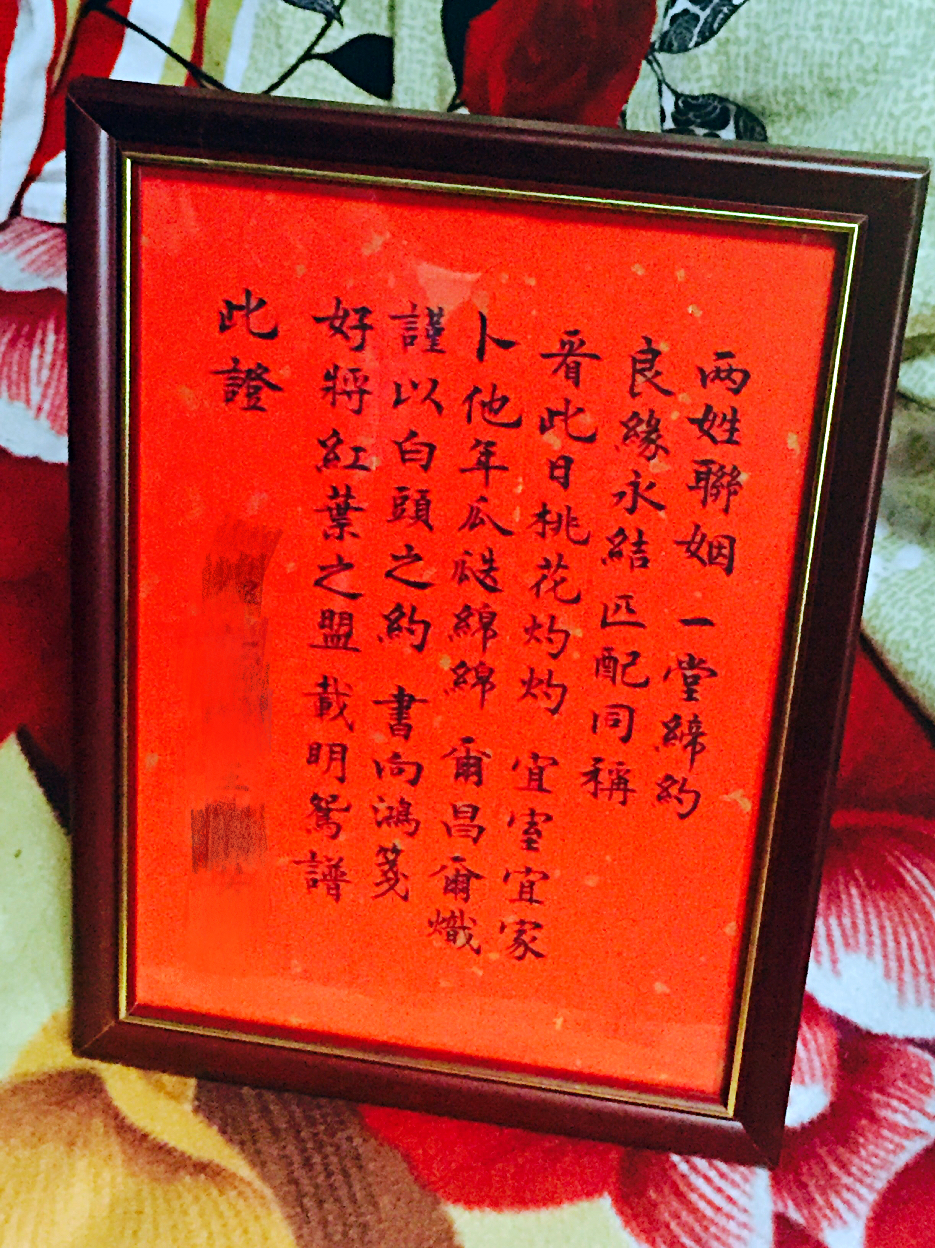 两姓聯姻 一堂締約
良緣永結 匹配同稱
看此日桃花灼灼 宜室宜家
卜他年瓜瓞綿綿 爾昌爾熾
謹以白頭之約 書向鴻箋
好將紅葉之盟 載明鴛譜
此證